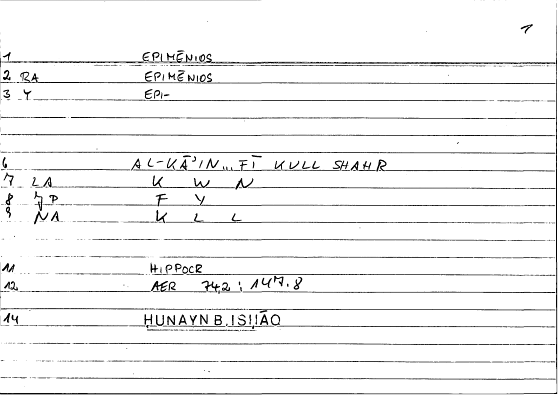 1
1 EPIMĒNIOS
2 RA EPIMĒNIOS
3 Y EPI-
6 AL-KĀʾIN... FĪ KULL SHAHR
7 LA K W N
8 F Y
9 NA K L L
11 HIPPOCR
12 AER 74,2 : 147.8
14 ḤUNAYN B. ISḤĀQ